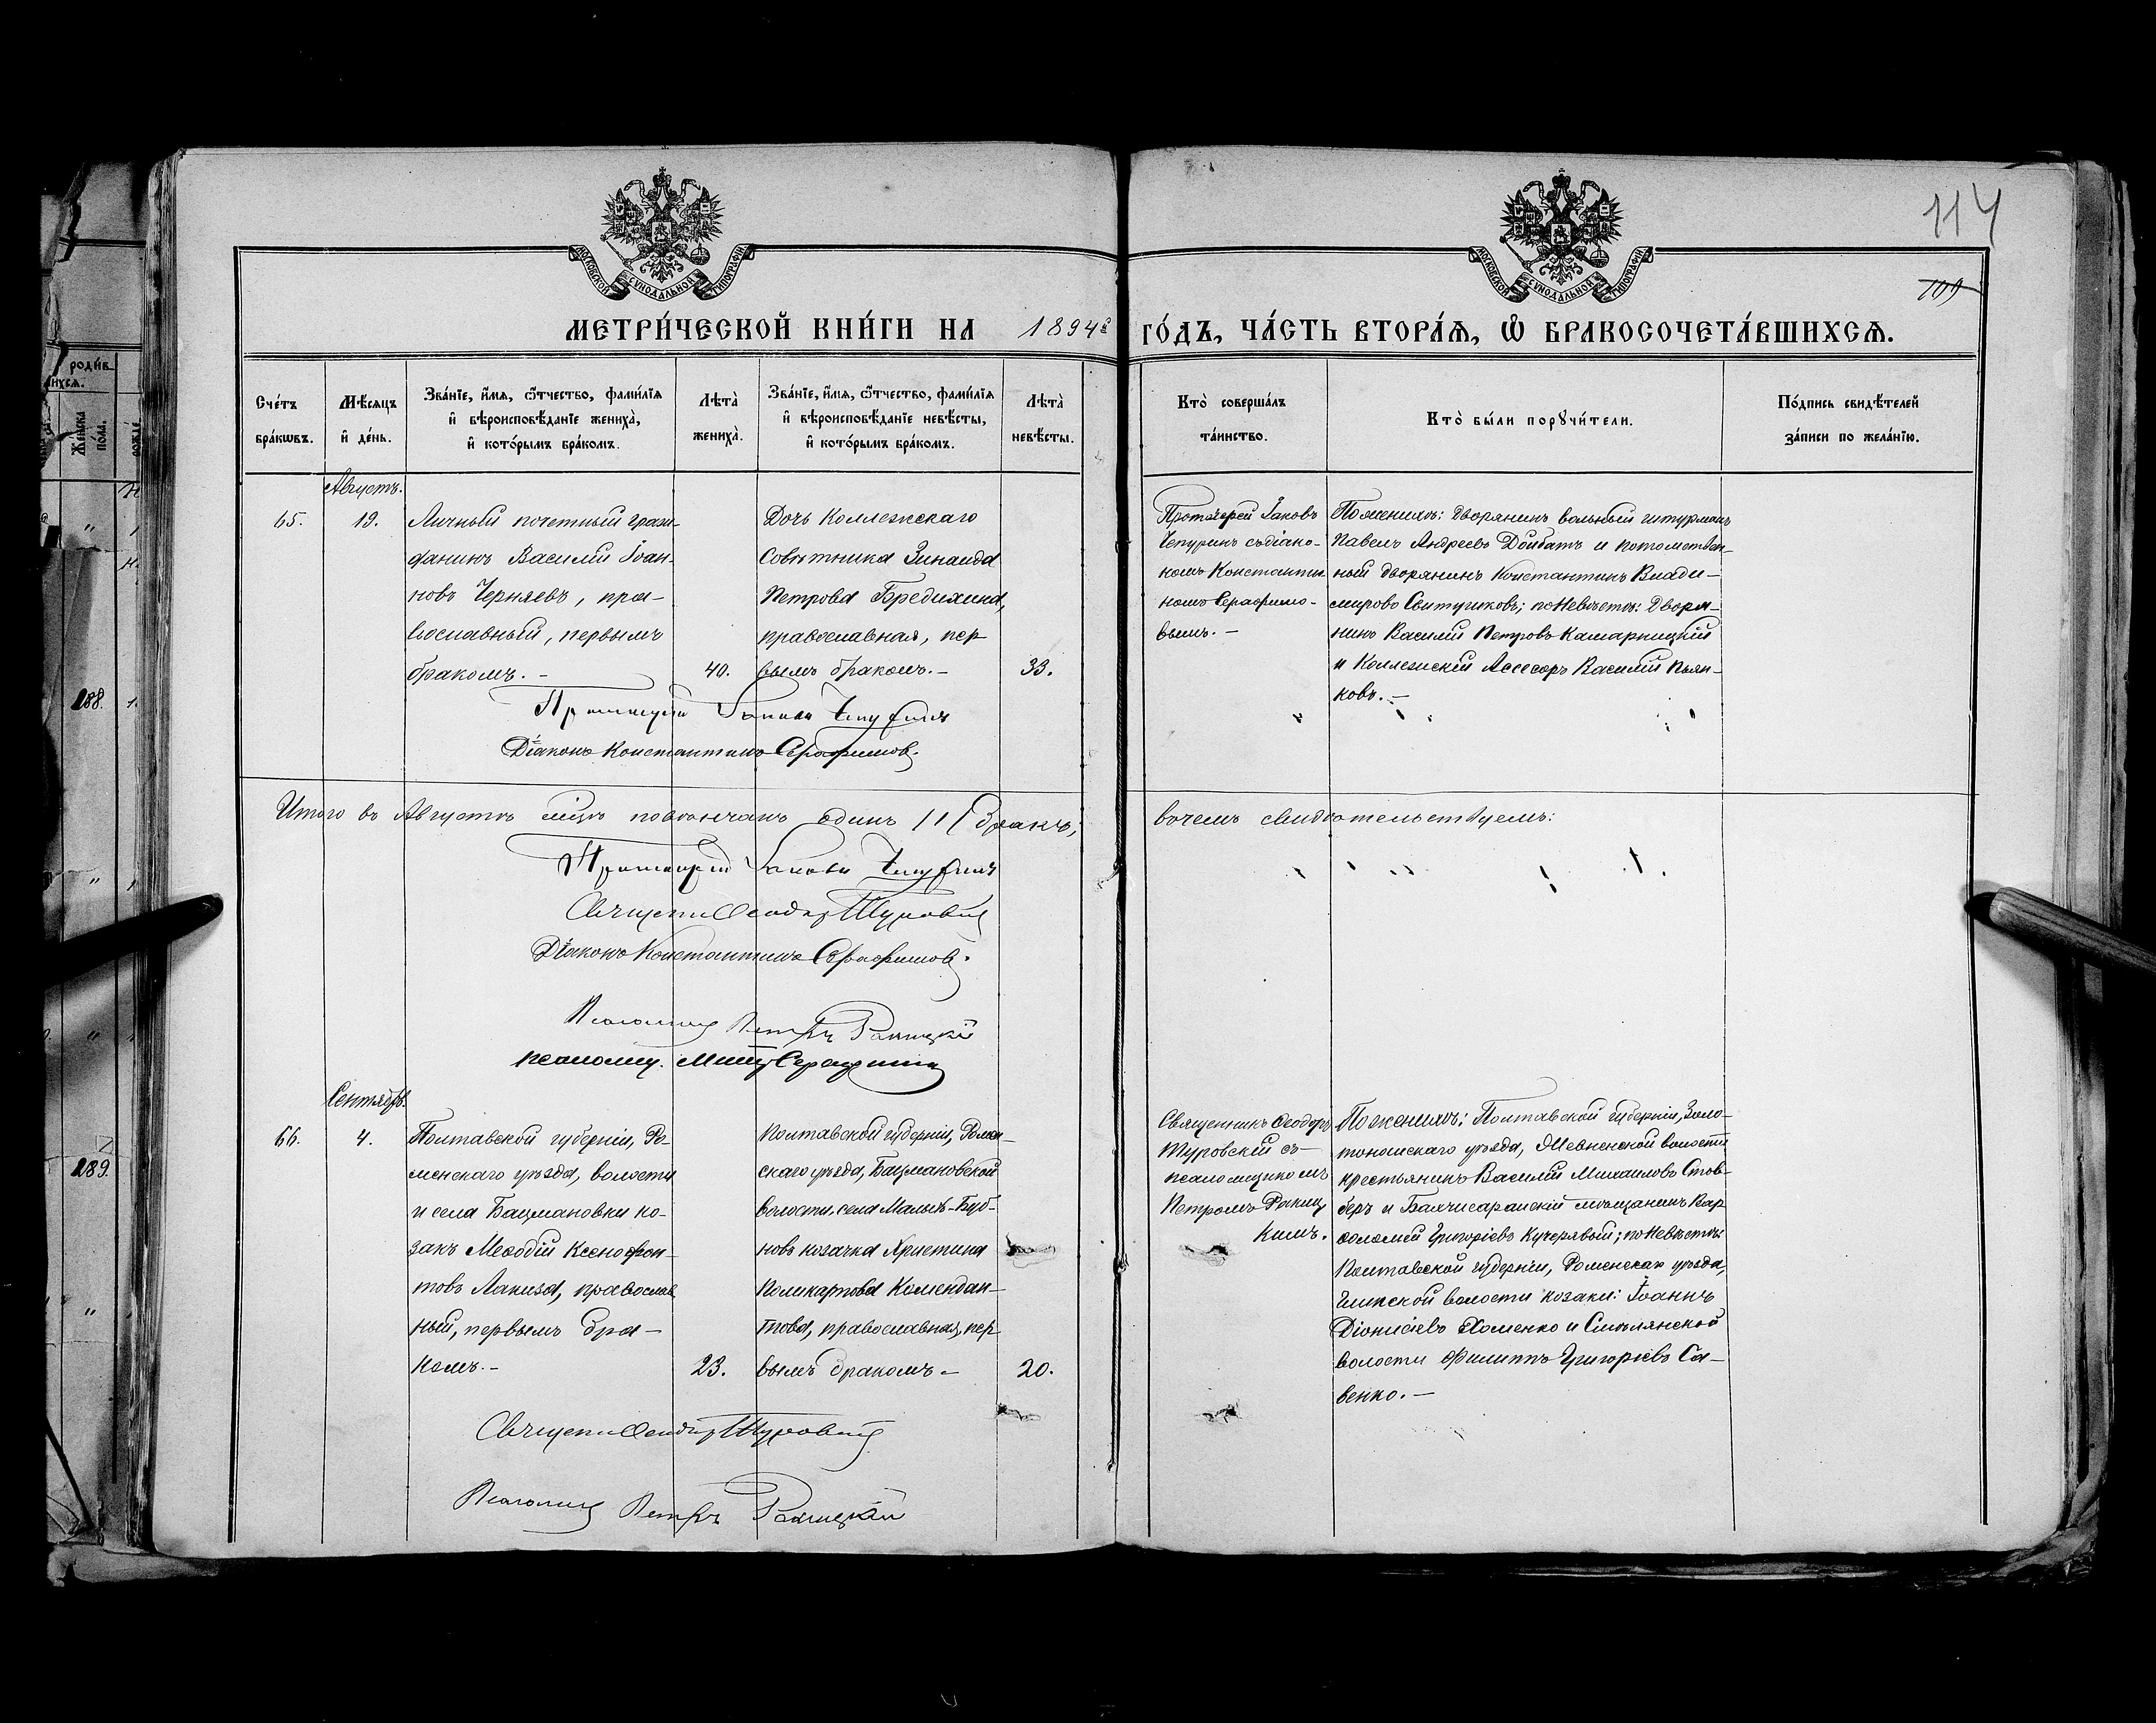 114
109
МОСКОВСКОЙ СУНОДАЛЬНОЙ ТИПОГРАФІИ
МОСКОВСКОЙ СУНОДАЛЬНОЙ ТИПОГРАФІИ
МЕТРИ́ЧЕСКОЙ КНИ́ГИ НА 1894й ГО́ДЪ, ЧА́СТЬ ВТОРА́Ѧ, Ѡ҆ БРАКОСОЧЕТА́ВШИХСѦ.
Сче́тъ бра́кѡвъ.
Мѣ́сяцъ и҆ де́нь.
Зва́нїе, и҆́мѧ, ѻ҆́тчество, фами́лїѧ
и҆ вѣроисповѣ́данїе жениха̀,
и҆ кото́рымъ бра́комъ.
Лѣта̀ жениха̀.
Зва́нїе, и҆́мѧ, ѻ҆́тчество, фами́лїѧ
и҆ вѣроисповѣ́данїе невѣ́сты,
и҆ кото́рымъ бра́комъ.
Лѣта̀ невѣ́сты.
Кто̀ соверша́лъ та́инство.
Кто̀ бы́ли порꙋчи́тели.
По́дпись свидѣ́телей
за́писи по жела́нїю.
Августъ.
65.
19.
Личный почетный граж-
данинъ Василій Іоан-
новъ Черняевъ, пра-
вославный, первымъ
бракомъ. -
40.
Дочь Коллежскаго
Совѣтника Зинаида
Петрова Бредихина,
православная, пер
вымъ бракомъ. -
33.
Протоіерей Іаковъ
Чепуринъ съ діако-
номъ Константи
номъ Серафимо-
вымъ. -
По женихѣ: дворянинъ вольный штурманъ
Павелъ Андреевъ Дойбатъ и потомствен-
ный дворянинъ Константинъ Влади-
мировъ Свитучковъ; по Невѣстѣ: Дворя-
нинъ Василій Петровъ Камарницкій
и Коллежскій Ассесоръ Василій Пьян-
ковъ. -
Протоіерей Іаковъ Чепуринъ
Діаконъ Константинъ Серафимов.
Итого въ Августѣ мцѣ повѣнчанъ одинъ /1/ бракъ; в чемъ свидѣтельствуемъ:
Протоіерей Іаковъ Чепуринъ
Священ. Ѳеодор Туровскій
Діаконъ Константинъ Серафимов.
Псаломщ Петръ Ракицкій
псаломщ. Серафимов
Сентябрь.
66.
4.
Полтавской губерніи, Ро-
менскаго уѣзда, волости
и села Бацмановки ко-
закъ Меѳодій Ксенофон-
товъ Лакиза, православ
ный, первымъ бра-
комъ. -
23.
Полтавской губерніи, Ромен-
скаго уѣзда, Бацмановской
волости, села Малыхъ-Буб-
новъ козачка Христина
Поликарпова Комендан-
това, православная, пер
вымъ бракомъ. -
20.
Священникъ Ѳеодоръ
Туровскій съ
псаломщикомъ
Петромъ Ракиц
кимъ.
По женихѣ: Полтавской губерніи, Золо-
тоношскаго уѣзда, волости
крестьянинъ Василій Михаиловъ Стов-
беръ и Бахчисарайскій мѣщанинъ Вар
ѳоломей Григоріевъ Кучерявый; по Невѣстѣ:
Полтавской губерніи, Роменскаго уѣзда,
волости козаки: Іоаннъ
Діонисіевъ Хоменко и Смѣлянской
волости Филиппъ Григоріевъ Са-
венко. -
Священ. Ѳеодор Туровскій
Псаломщ Петръ Ракицкій
288.
289.